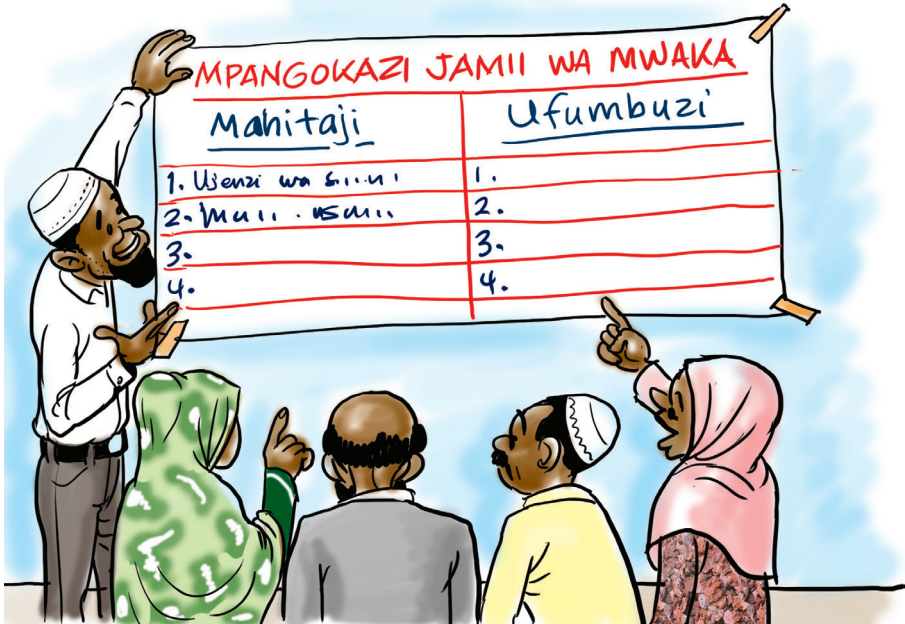 MPANGOKAZI JAMII WA MWAKA
Mahitaji
Ufumbuzi
1. Ujenzi wa
2.
3.
4.
1.
2.
3.
4.